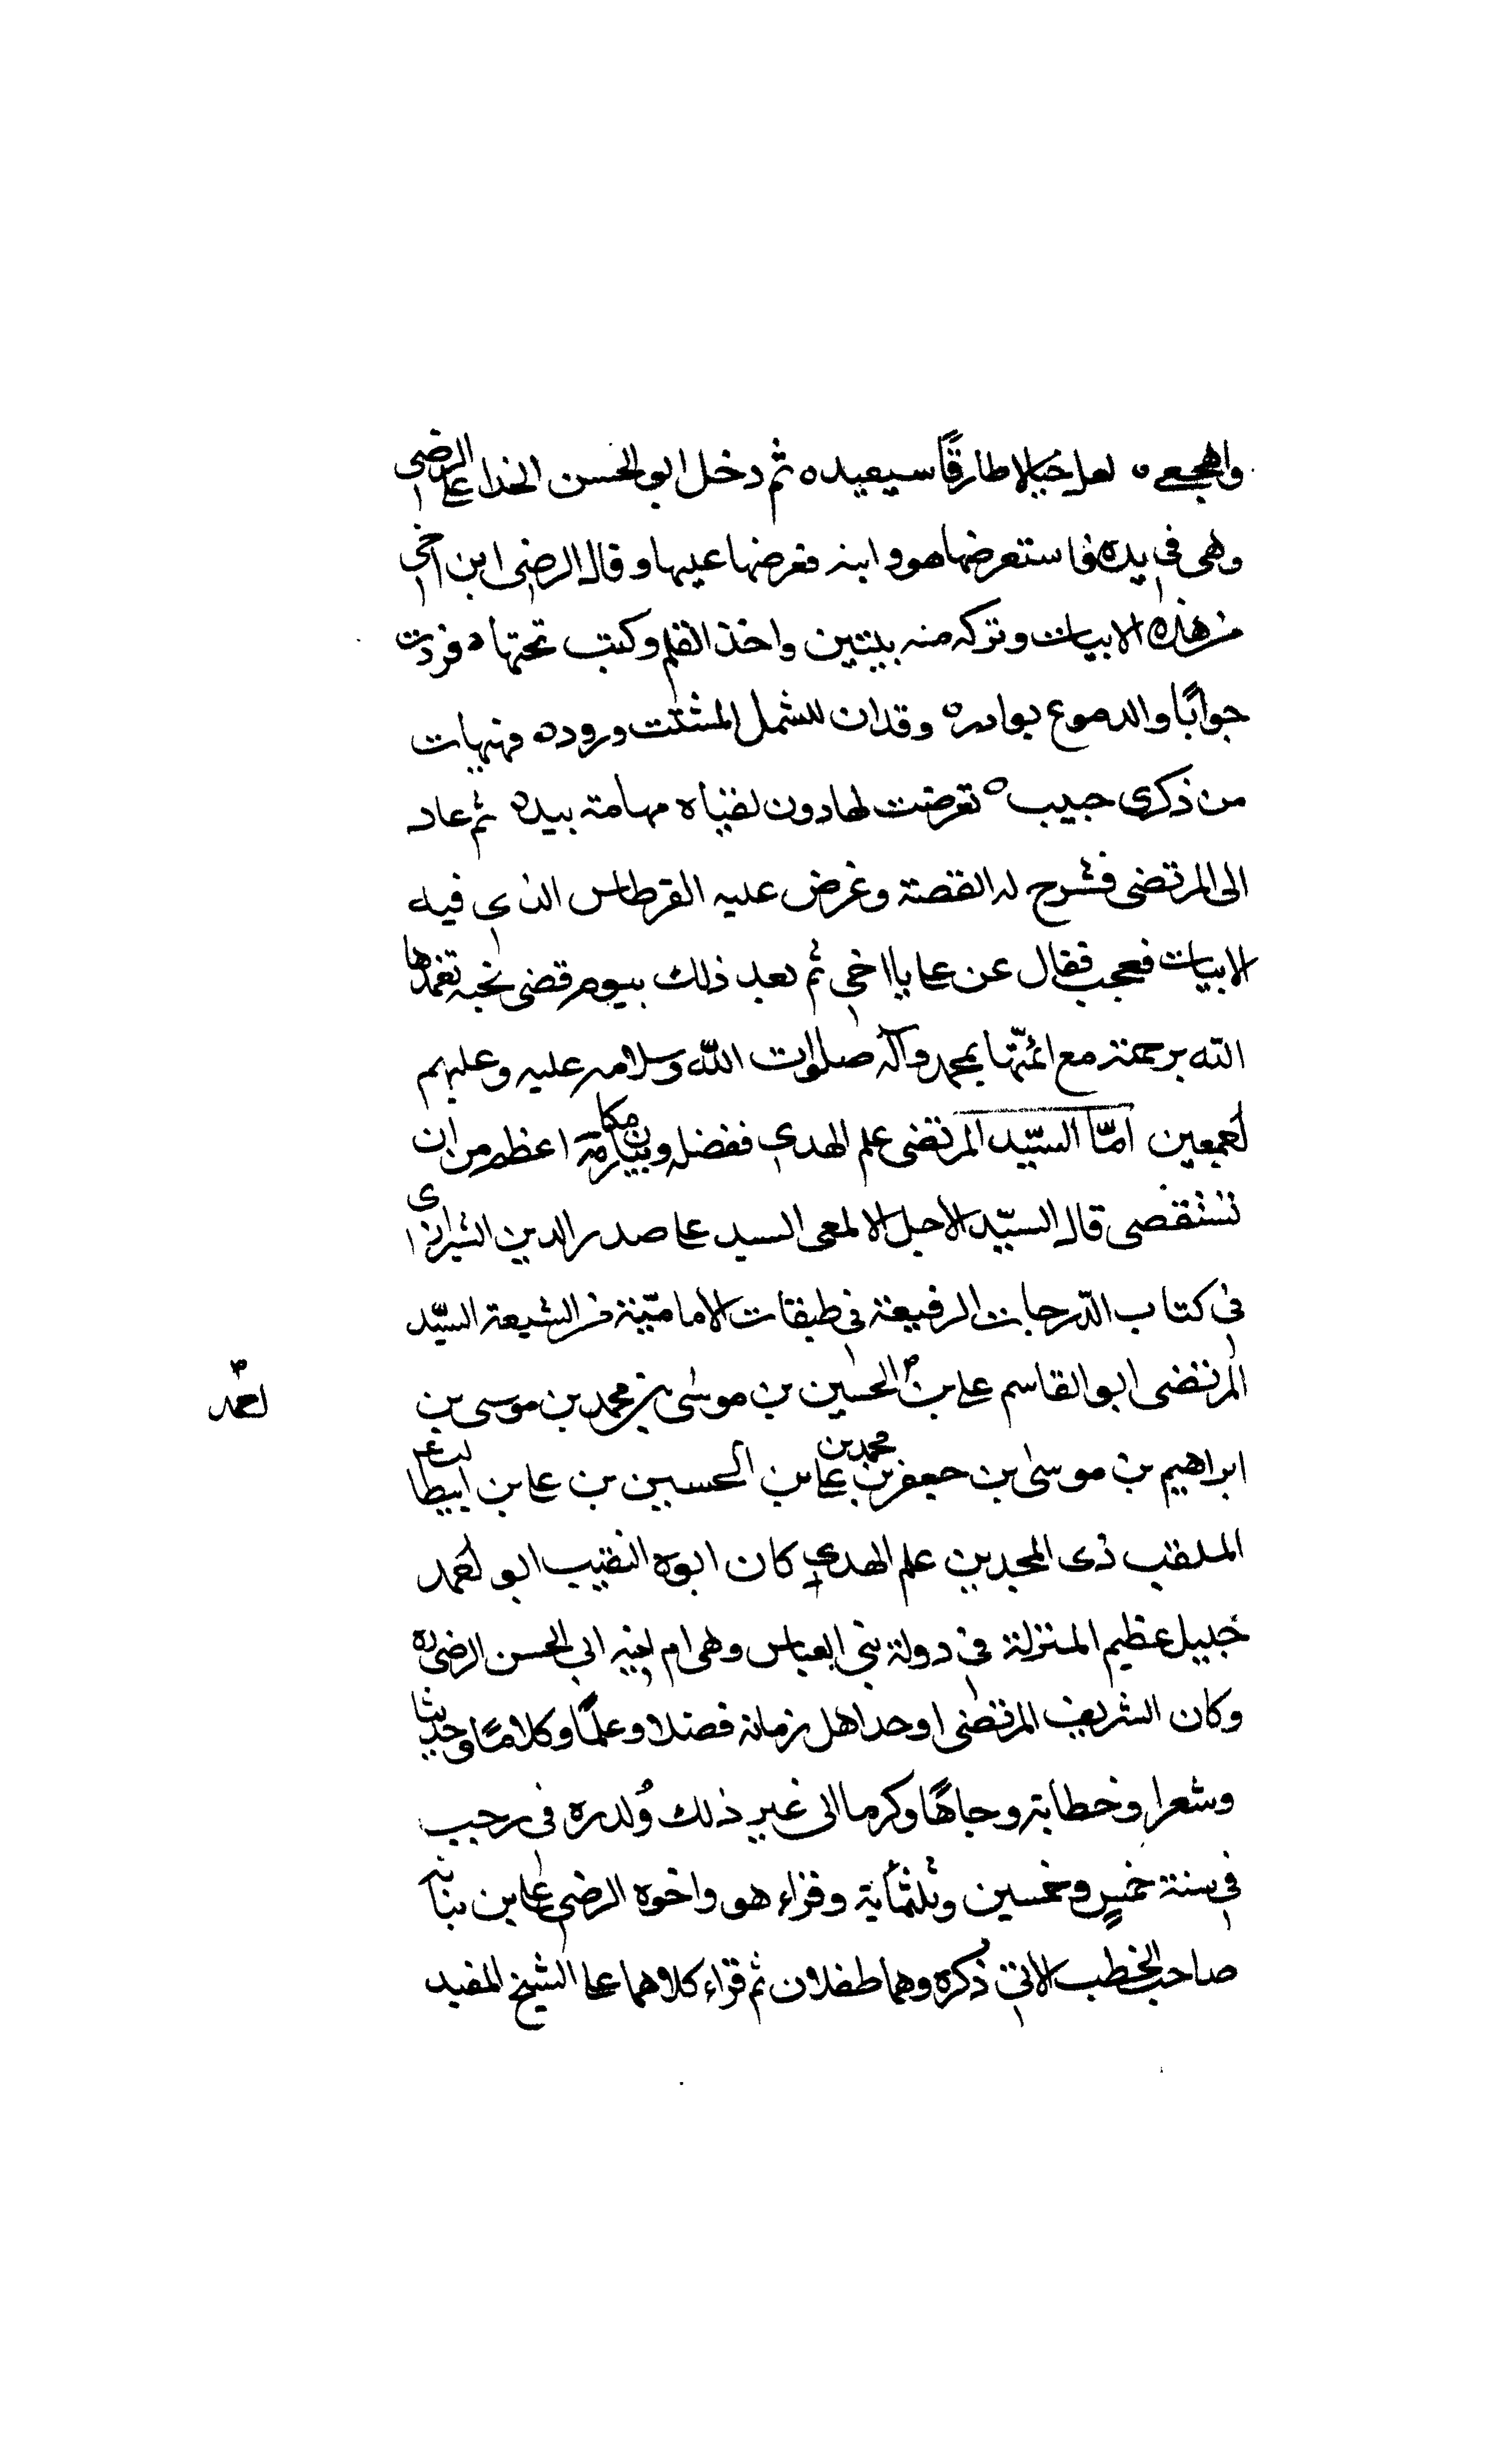 واهجعي ه لعل خيالا طارقًا سيعيده ثم دخل ابو الحسن الخدا على الرضي
وهى فى يده فاستعرضها هو وابنه فعرضها عليها وقال الرضى ابن اخى
من هذه الابيات وتركه منه بيتين واخذ القلم وكتب تحتها ه فردت
جوابًا والدموع بوادره وقد ان للشمل المشتت وروده فهيهات
من ذكرى حبيب ه تعرضت لها دون لقياه مهامة بيده ثم عاد
الى المرتضى فشرح له القصة وعرض عليه القرطاس الذى فيه
الابيات فعجب فقال عن على يا اخى ثم بعد ذلك بيوم قضى نحبه تغمدها
الله برحمته مع ائمّتها بمحمد وآله صلوات اللّه وسلامه عليه وعليهم
اجمعين امّا السيّد المرتضى علم الهدى ففضله وبيان مكارمة اعظم من ان
تستقصى قال السيّد الاجل الالمعى السيد على صدر الدين الشيرازى
فى كتاب الدّرجات الرفيعة فى طبقات الاماميّة من الشيعة السيّد
المرتضى ابو القاسم على بن الحسين بن موسى بن محمد بن موسى بن
احمد
ابراهيم بن موسى بن جعفر بن محمد بن على بن الحسين بن على بن ابيطالب ع
الملقب ذى المجدين علم الهدى كان ابوه النقيب ابو احمد
جليل عظيم المنزلة فى دولة بنى العباس وهى ام اخيه ابى الحسن الرضى ره
وكان الشريف المرتضى اوحد اهل زمانه فضلا وعلمًا وكلامًا وحديثا
وشعرا وخطابة وجاهًا وكرما الى غير ذلك وُلد ره فى رجب
فى سنة خمسٍ وخمسين وثلثمأية وقراء هو واخوه الرضى على ابن نباته
صاحب الخطب الاتى ذكره وهما طفلان ثم قراء كلاهما على الشيخ المفيد